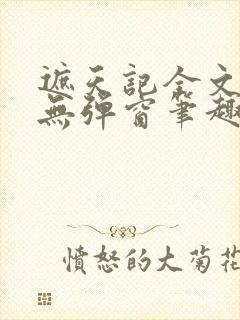 遮天記全文
無彈窗筆趣
憤怒的大菊花